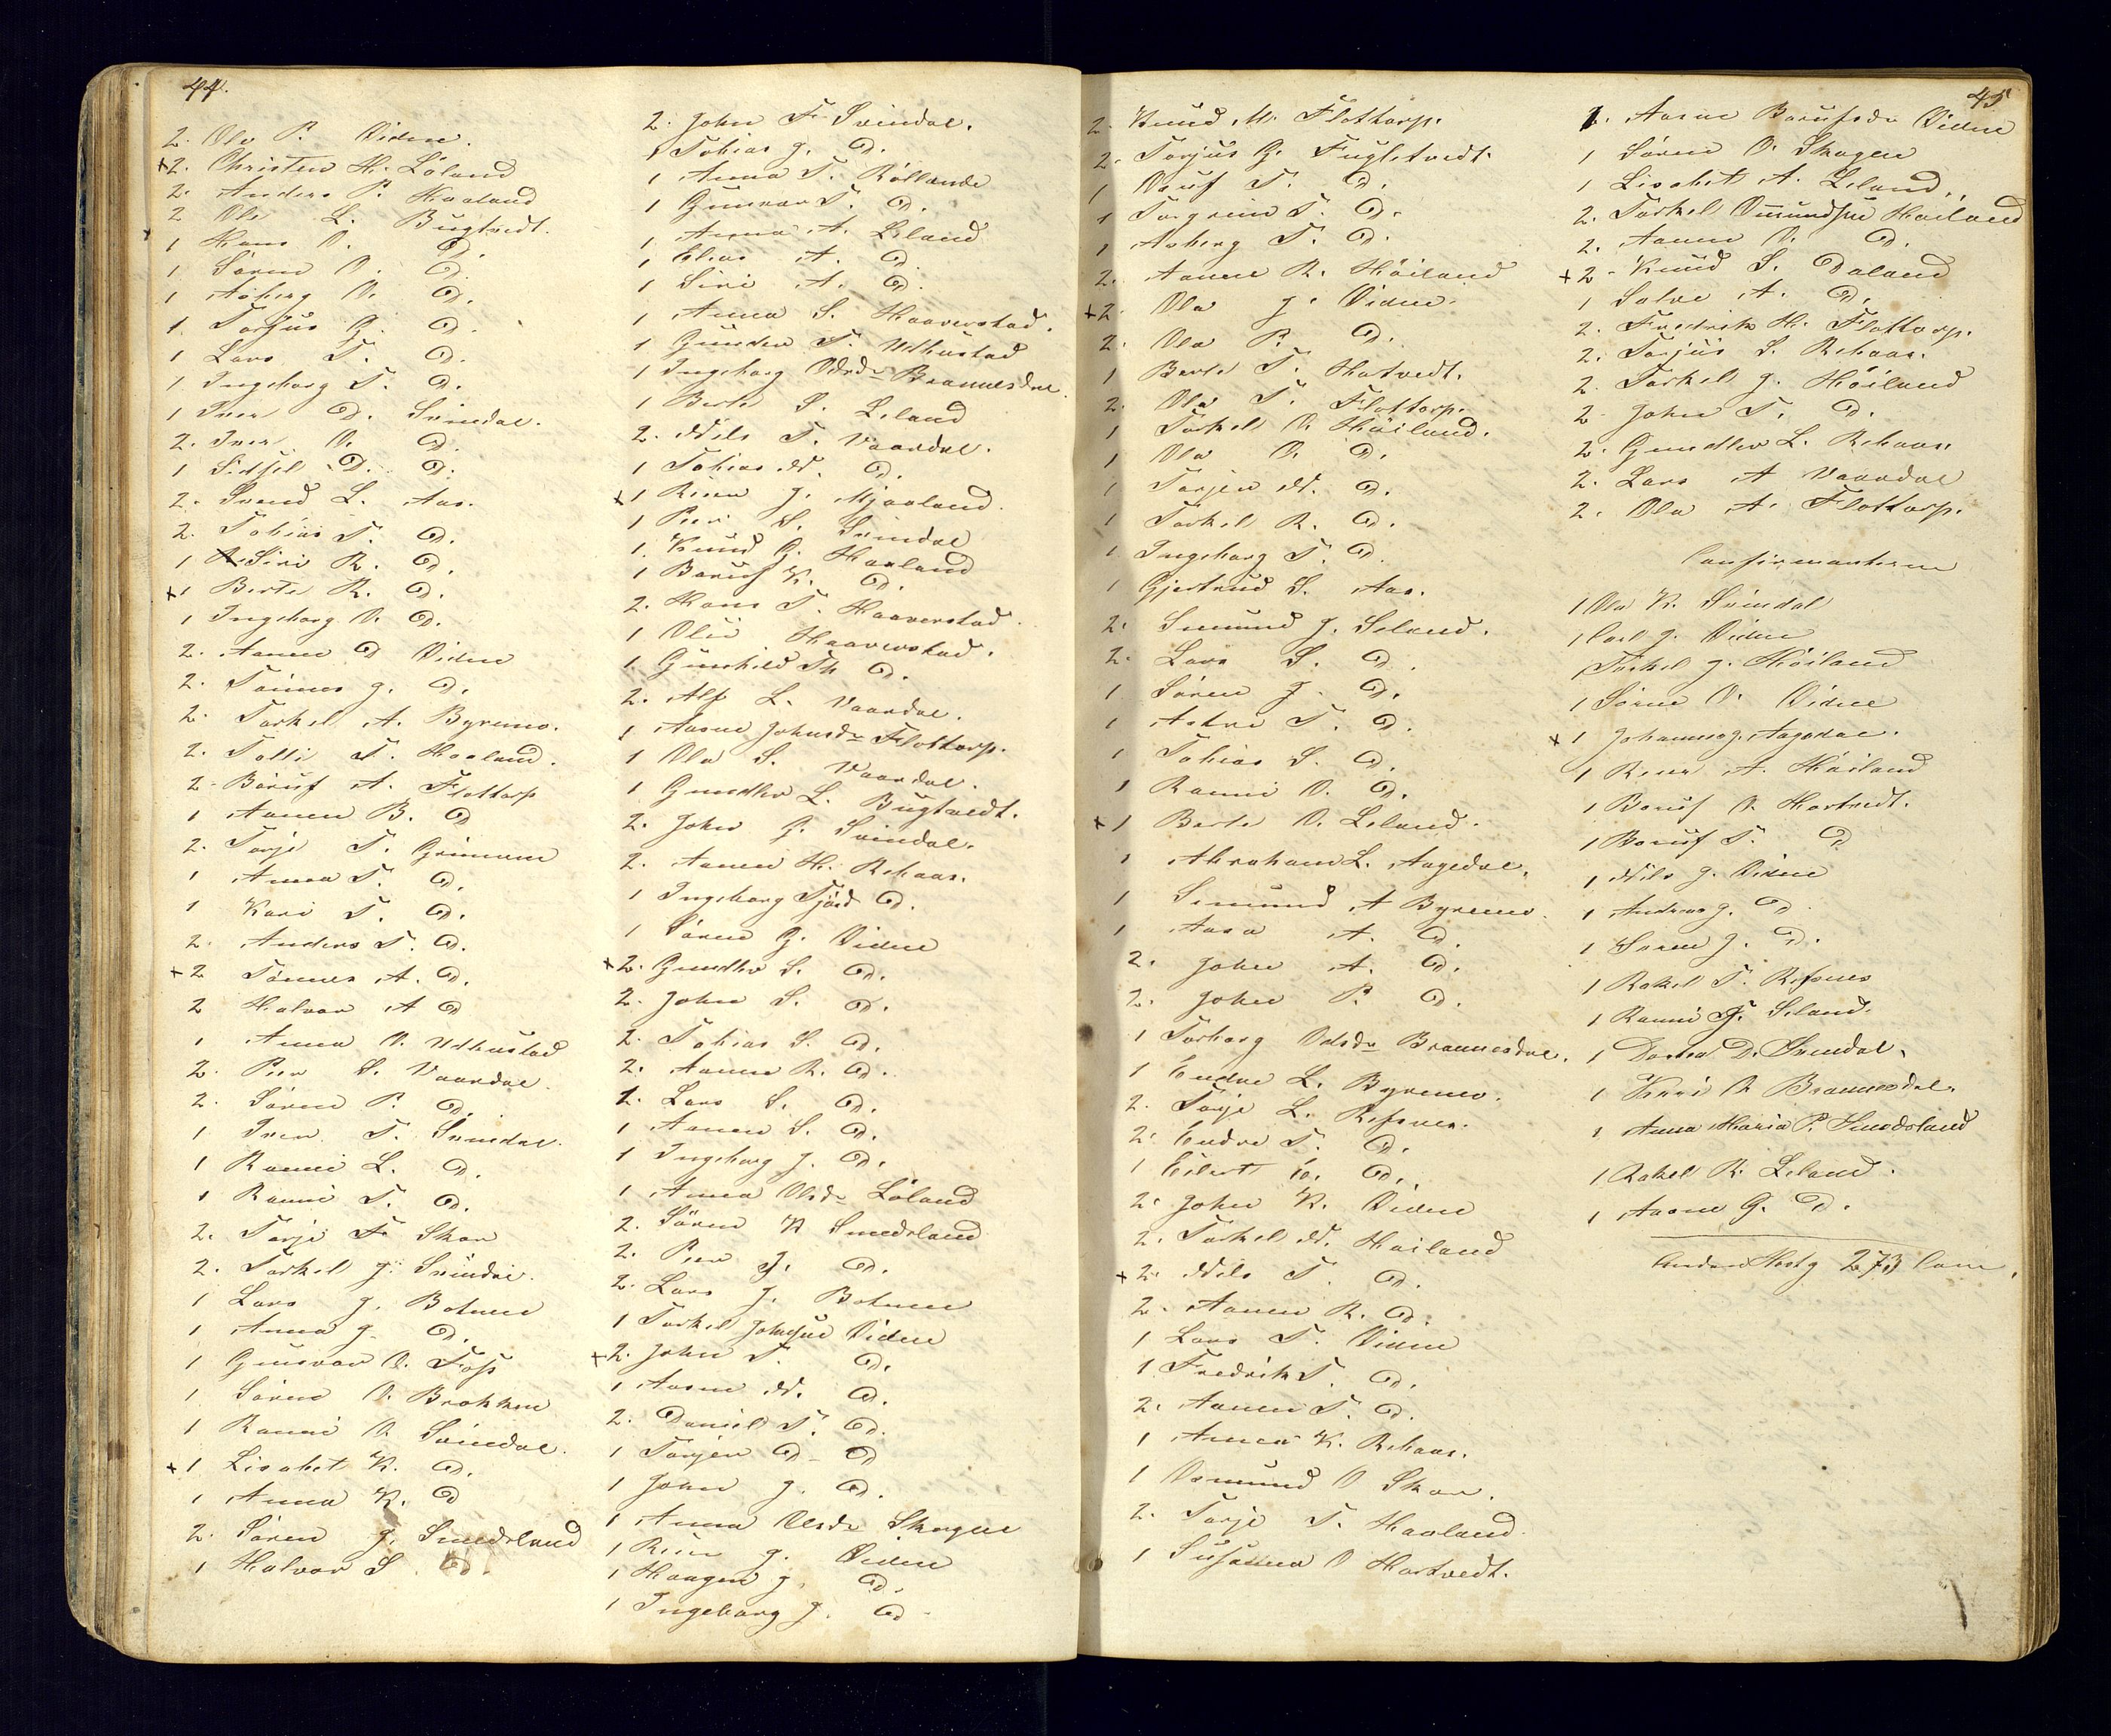 44.
2. Ole P. Vidne.
+2. Christen H. Löland
2. Anders P. Haaland
2 Ole L. Bugtvedt.
1 Hans O. D.
1 Sören O. D.
1 Asberg O. D.
1. Torjus G. D.
1 Lars T. D.
1 Ingeborg T. D.
1 Iver D. Svindal.
2. Iver O. D.
1 Sidsel D. D.
2. Svend L. Aas.
2. Tobias T. D.
1 Siri R. D.
+1 Berte R. D.
1 Ingeborg O. D.
2. Aanen D Vidne
2. Tönnes J. D.
2. Torkel A. Byremo.
2. Tolli T. Haaland.
2. Boruf A. Flottorp
1 Aanen B. D
2. Torje T. Grimom
1 Anna T. D.
1 Kari T. D.
2. Anders T. D.
+2 Tönnes A. D.
2 Halvor A D
1 Anna O. Udhustad
2. Peer S. Vaardal.
2. Sören P. D.
1 Iver T. Svindal.
1 Ranni L. D.
1 Ranni T. D.
2. Torje F. Skar
2. Torkel J. Svindal.
1 Lars J. Botnen
1 Anna J. D.
1 Gunvor O. Foss
1 Sören O. Brokken
1 Ranni O Svindal.
+1 Lisabet K. D.
1 Anna K. D
2. Sören J. Smedsland
1 Halvor S. D.
2. John F. Svindal.
1 Tobias J. D.
1 Anna T. Röllende
1 Gunvor T. D.
1 Anna A. Leland
1 Elias A. D.
1 Siri A. D.
1 Anna S. Haaverstad.
1 Gunder T. Udhustad
1 Ingeborg Odsdr Brannesdal.
1 Berte S. Leland
2. Nils T. Vaardal.
1 Tobias N. D.
+1 Reier J. Mjaaland.
1 Peer S. Svindal
1. Knud G. Haaland
1 Boruf K. D.
2. Hans T. Haaverstad.
1 Oliv Haaverstad.
1. Gunhild Th D.
2. Alf L. Vaardal.
1 Aasne Johnsdr Flottorp.
1 Ole S. Vaardal.
1 Gundlev L. Bugtvedt.
2. John G. Svindal.
2. Aanen H. Rehaas.
1 Ingeborg D.
1 Sören G. Vidne
+2. Gundlev S. D.
2. John S. D.
2. Tobias S. D.
2. Aanen R. D.
1. Lars S. D.
1 Aanen S. D.
1 Ingeborg J. D.
1 Anna Olsdr Löland
2. Sören K Smedsland
2. Peer J. D.
2. Lars J. Botnen
1 Torkel Johnsen Vidne
+2. John T. D.
1 Aasne N. D.
2. Daniel T. D.
1 Torjer D. D
1 John J. D.
1 Anna Olsdr Skagen
1 Reier J. Vidne
1 Haagen J. D.
1 Ingeborg J. D
45
2. Knud M. Flottorp.
2. Torjus G. Fuglstvedt.
1 Osuf T. D.
1 Torgrim T. D.
1 Asberg T. D.
2. Aanen R. Höiland
+2. Ole J. Vidne.
2. Ole P. D.
1 Berte T. Hatvedt.
2. Ole T. Flottorp.
1 Torkel O. Höiland.
1 Ole O. D.
1 Torjer N. D.
1 Torkel R. D.
1 Ingeborg T. D
1 Gjertrud S. Aas.
2. Smund J. Seland.
2. Lars S. D.
1 Sören J. D.
1 Astri T. D.
1 Tobias S. D.
1 Ranni O. D.
+1 Berte O. Leland.
1 Abraham L. Aagedal.
1 Simund A Byremo.
1 Aasa A. D.
2. John A. D.
2. John P. D.
1 Torborg Odsdr Brannesdal.
1 Endre L. Byremo.
2. Torje L. Refsnes.
2. Endre T. D.
1 Eilert E. D.
2. John K. Vidne
2. Torkel N. Höiland
+2. Nils T. D.
2. Aanen R. D.
1 Lars T. Vidne
1 Fredrik T. D.
2. Aanen T. D.
1 Anna K. Rehaas.
1 Osmund O Skar.
2. Torje T. Haaland
1 Susanna O Hartvedt.
1. Aasne Borufsdr Vidne
1 Sören O. Skagen
1 Lisabet A. Leland.
2. Torkel Omundsen Höiland
2. Aanen O. D.
+2. Knud S. Daland
1 Salve A. D.
2. Fredrik H. Flottorp.
2. Torjus S. Rehaas.
2. Torkel J. Höiland
2. John T. D.
2. Gundlev L. Rehaas.
2. Lars A Vaardal
2. Ole A. Flottorp.
Confirmanterne
1 Ole K. Svindal
1 Carl J. Vidne
1 Torkel J. Höiland
1 Sören O. Vidne
+1 Johannes J. Aagedal.
1 Reier A. Höiland
1 Boruf O. Hartvedt.
1 Boruf T. D
1 Nils J. Vidne
1 Andreas J. D.
1 Sören J. D.
1 Rakel T. Refsnes
1 Ranni T. Seland.
1 Dorthea D. Svindal.
1 Kari O Brannesdal.
1 Anna Maria P. Smedsland
1 Rakel R. Leland.
1 Aasne G. D.
273 Com.